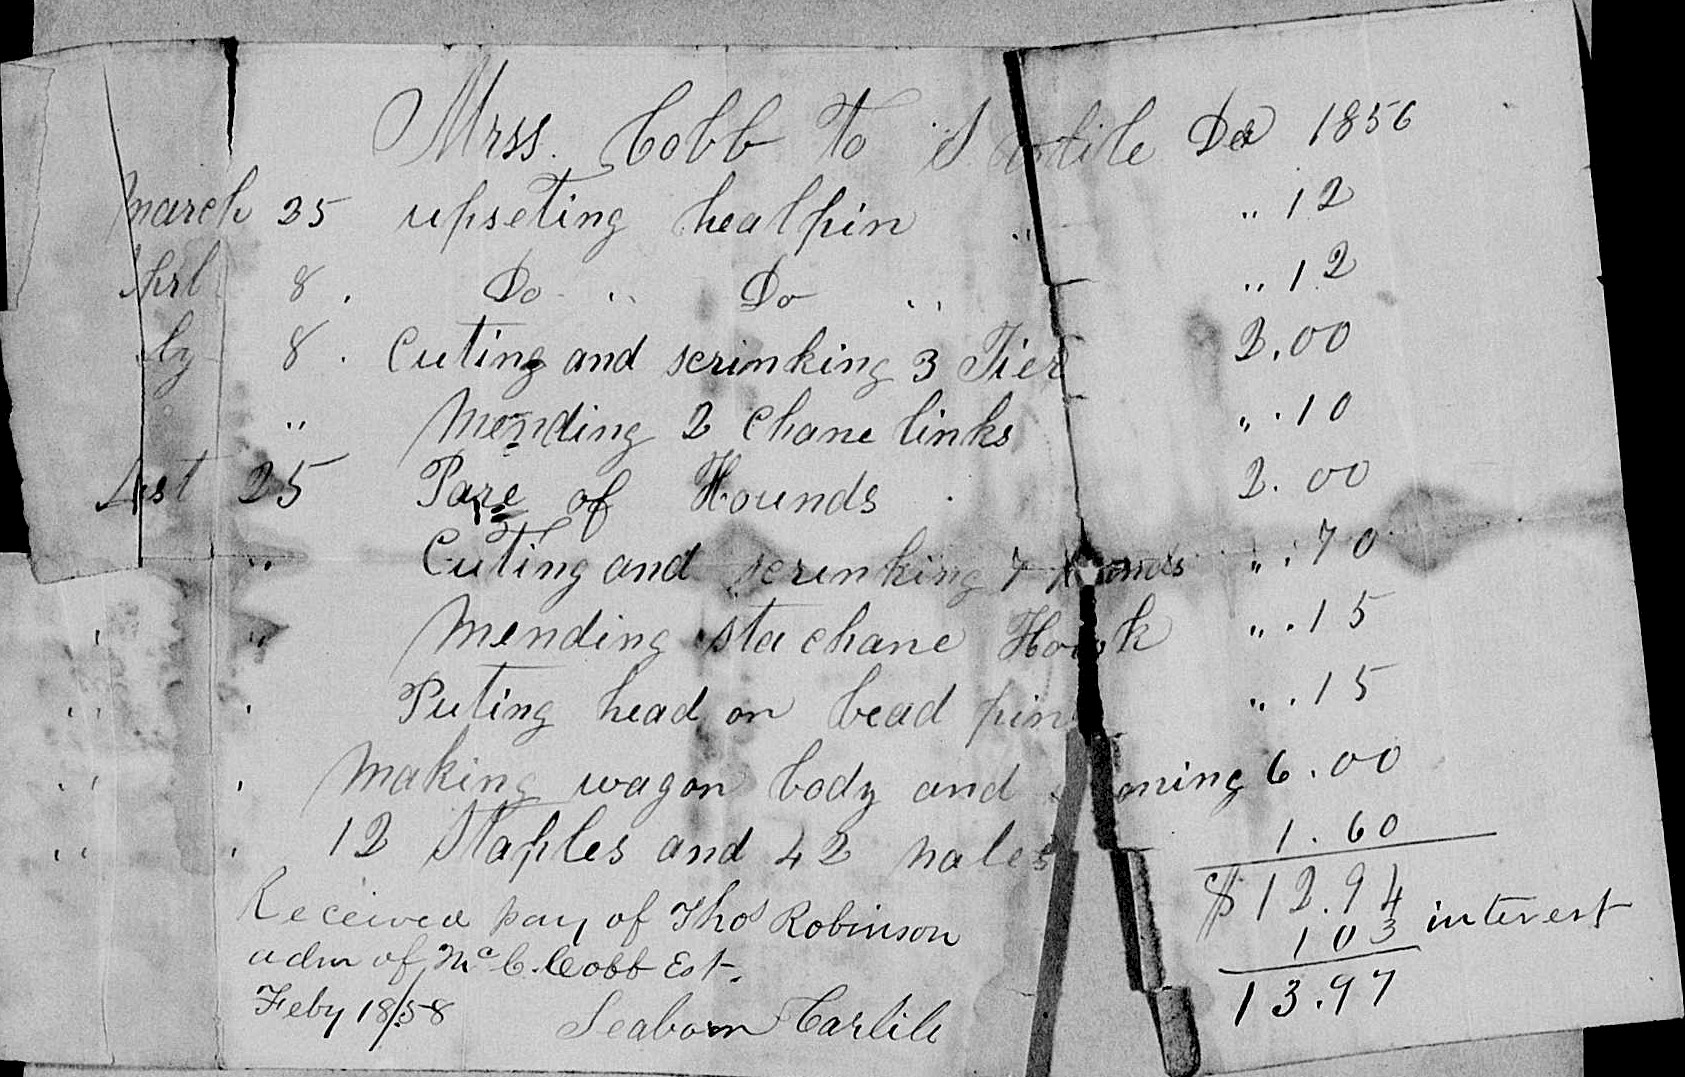 Mrss. Cobb To S Carlile Dr 1856
march 25 upseting healpin " " 12
Aprl 8 . Do " Do " " 12
ly 8 . Cuting and scrinking 3 Tier 2.00
" Mending 2 Chane links " .10
Ast 25 Pare of Hounds . 2.00
" Cuting and scrunking 7 " .70
" Mending sta chane Hook " .15
Puting head on bead pin " .15
making wagon body and oning 6.00
12 Staples and 42 nales 1.60
$12.94
103 interest
13.97
Received pay of Thos Robinson
adm of Mc C. Cobb Est.
Feby 1858 Seaborn Carlile